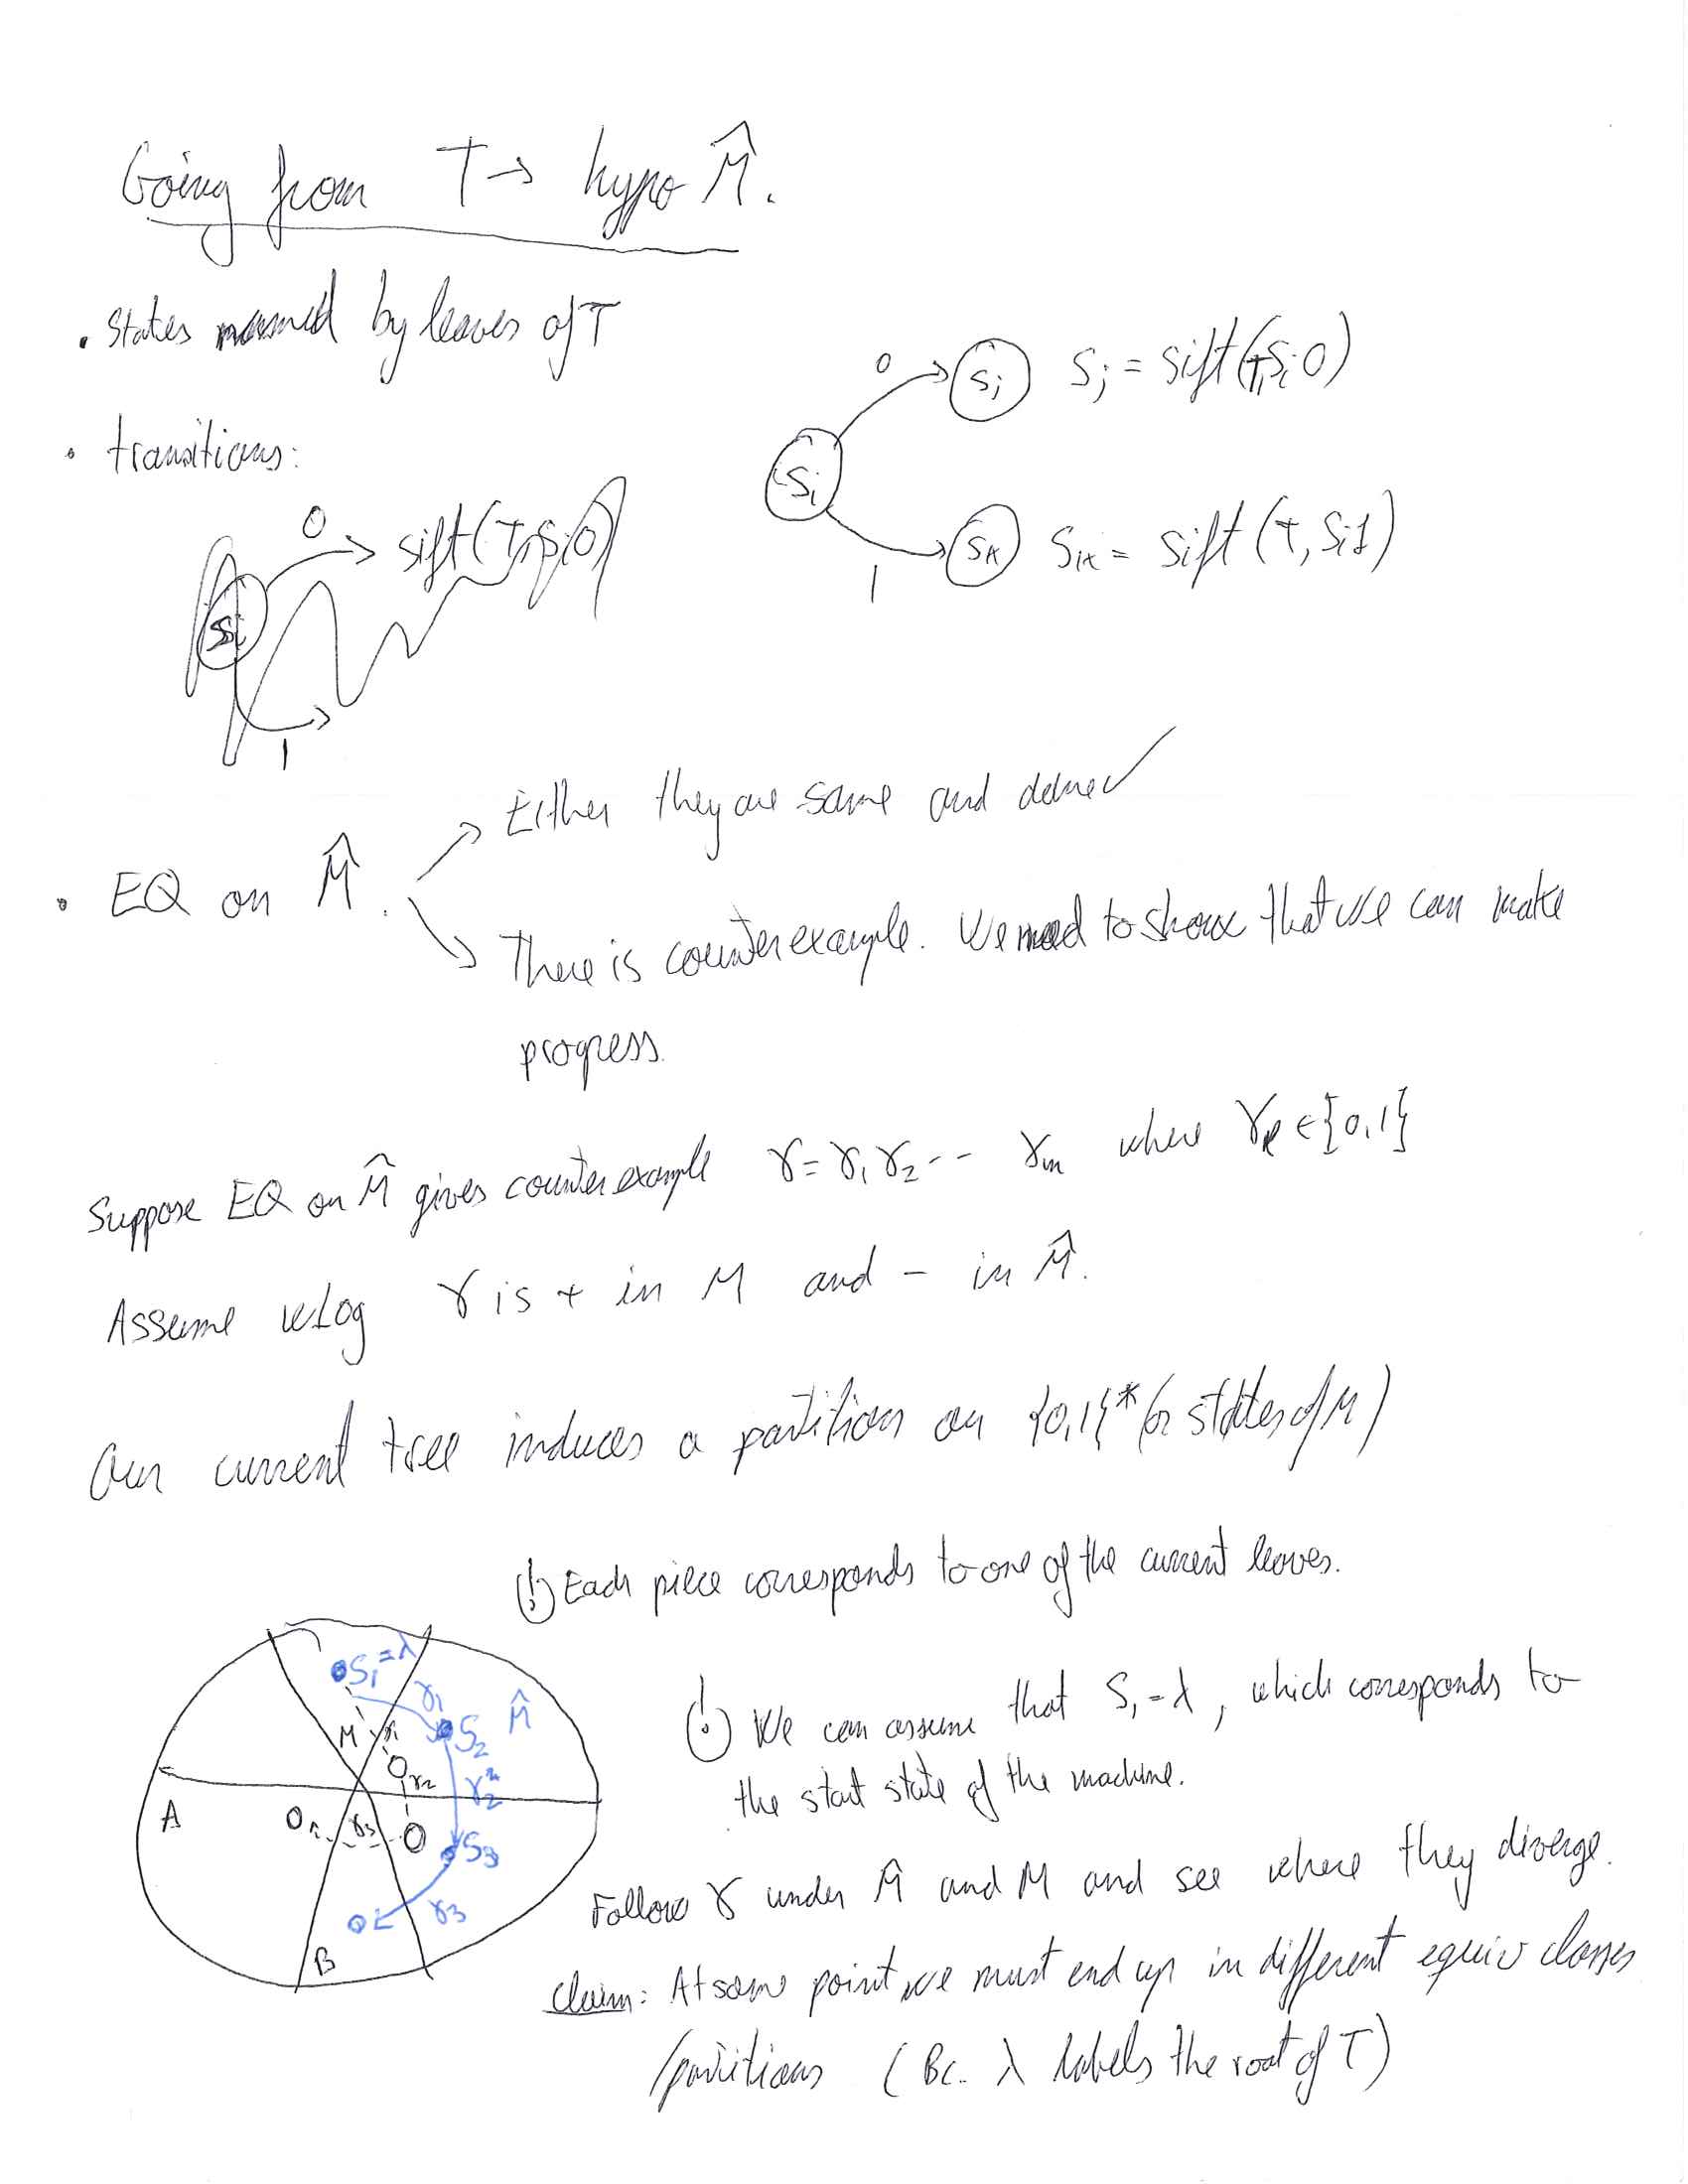 Going from T → hypo M̂.
• States named by leaves of T
• transitions:
0 sift(T, Si0)
Si
1
0 Sj Sj = sift(T, Si0)
Si
1 Sk Sk = sift(T, Si1)
• EQ on M̂.
→ Either they are same and done ✓
→ There is counterexample. We need to show that we can make
progress.
Suppose EQ on M̂ gives counterexample γ = γ1 γ2 -- γm where γℓ ∈ {0,1}
Assume wlog γ is + in M and − in M̂.
Our current tree induces a partition on {0,1}* (or states of M)
(!) Each piece corresponds to one of the current leaves.
(!) We can assume that S1 = λ, which corresponds to
the start state of the machine.
S1 = λ
γ1
M γ1 S2 M̂
γ2 γ2
A γ3 S3
γ3
B
Follow γ under M̂ and M and see where they diverge.
Claim: At some point, we must end up in different equiv classes
/partitions (Bc. λ labels the root of T)